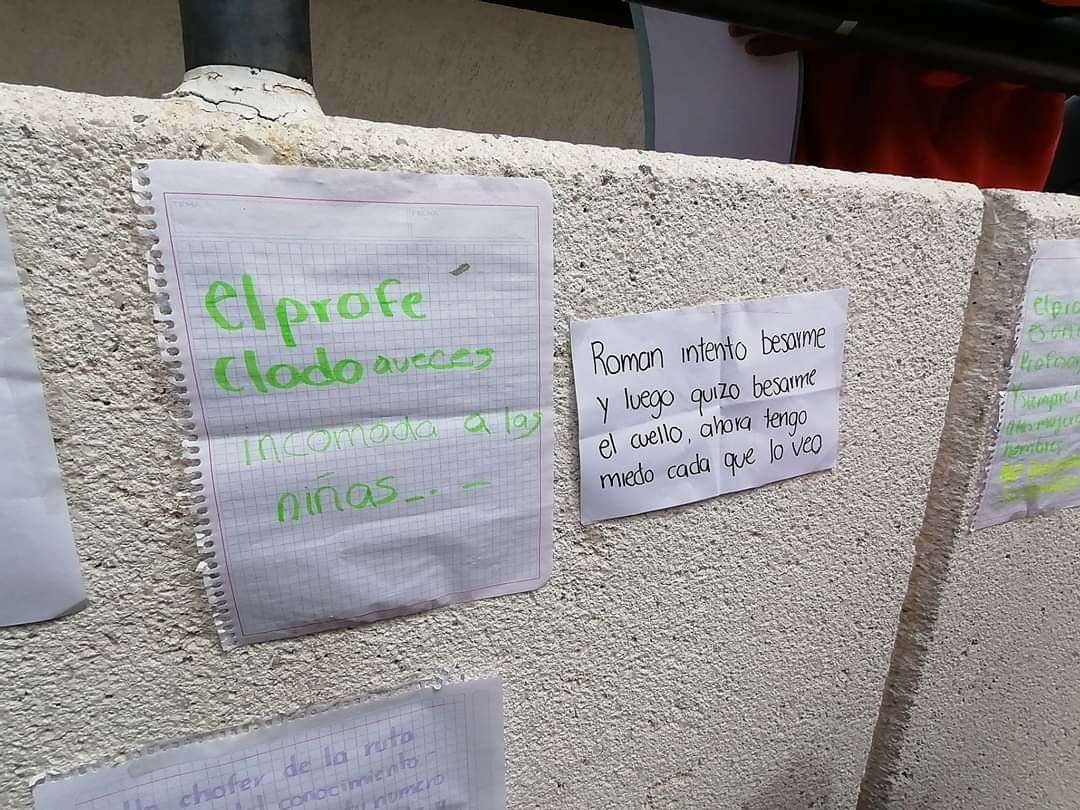 TEMA
FECHA
el profe
Clodo aveces
incomoda a las
niñas_._
Roman intento besarme
y luego quizo besarme
el cuello, ahora tengo
miedo cada que lo veo
y siempre
nombre
Un chofer de la ruta
del conocimiento
numero